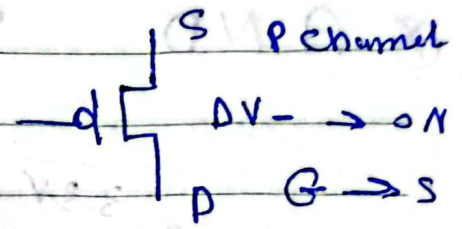 S P Channel
OV - → ON
D G → S